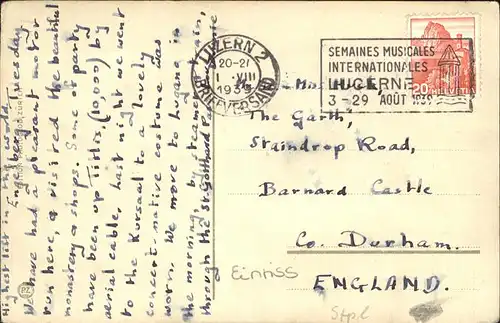 Highest lift in the world
Engelberg. Tuesday
We have had a pleasant motor
run here, & visited the beautiful
monastery & shops. Some of party
have been up Titlis, (10,000) by
aerial cable. Last night we went
to the Kursaal to a lovely
concert - native costume was
worn. We move to Lugano in
the morning, by steamer & train,
through the St. Gotthard
LUZERN 2
20-21
1 . VIII
1939
BRIEFVERSAND
SEMAINES MUSICALES
INTERNATIONALES
LUCERNE
3-29 AOÛT 1939
20
The Garth,
Staindrop Road,
Barnard Castle
Co. Durham.
ENGLAND.
Einriss
Stpl
PZ